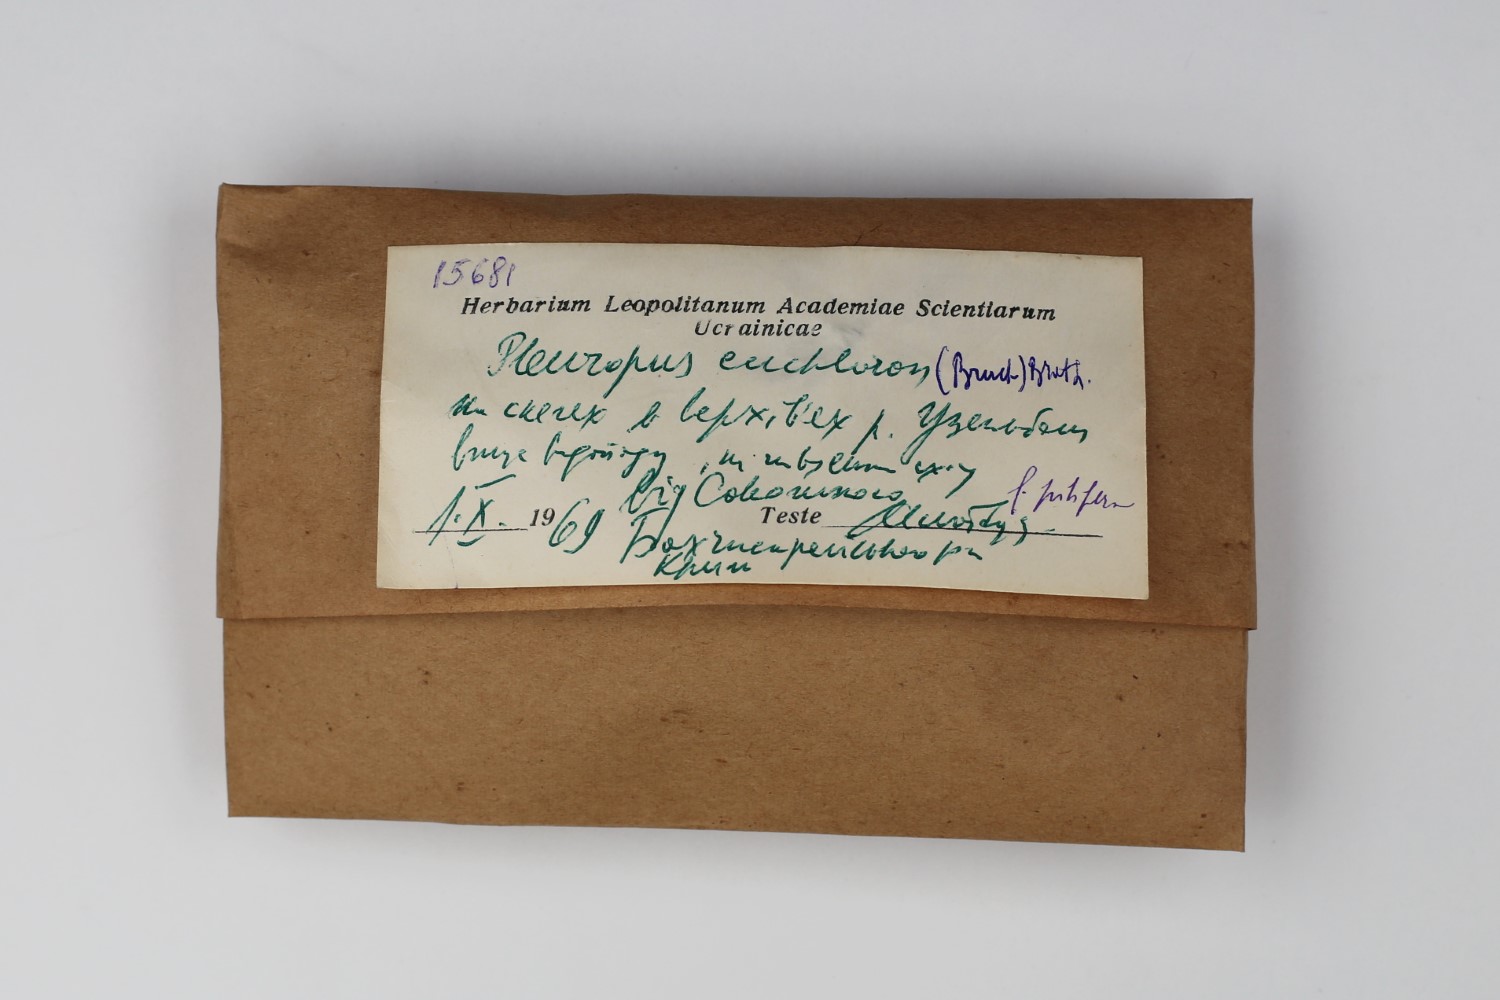 15681
Herbarium Leopolitanum Academiae Scientiarum
Ucrainicae
Pleuropus euchloron (Bruch) Broth.
на скелях в верхів'ях р. Узеньбаш
вище водопаду, на
від Соколиного f. pilifera
1.X. 1969 Teste
Бахчисарайського р-н
Крим